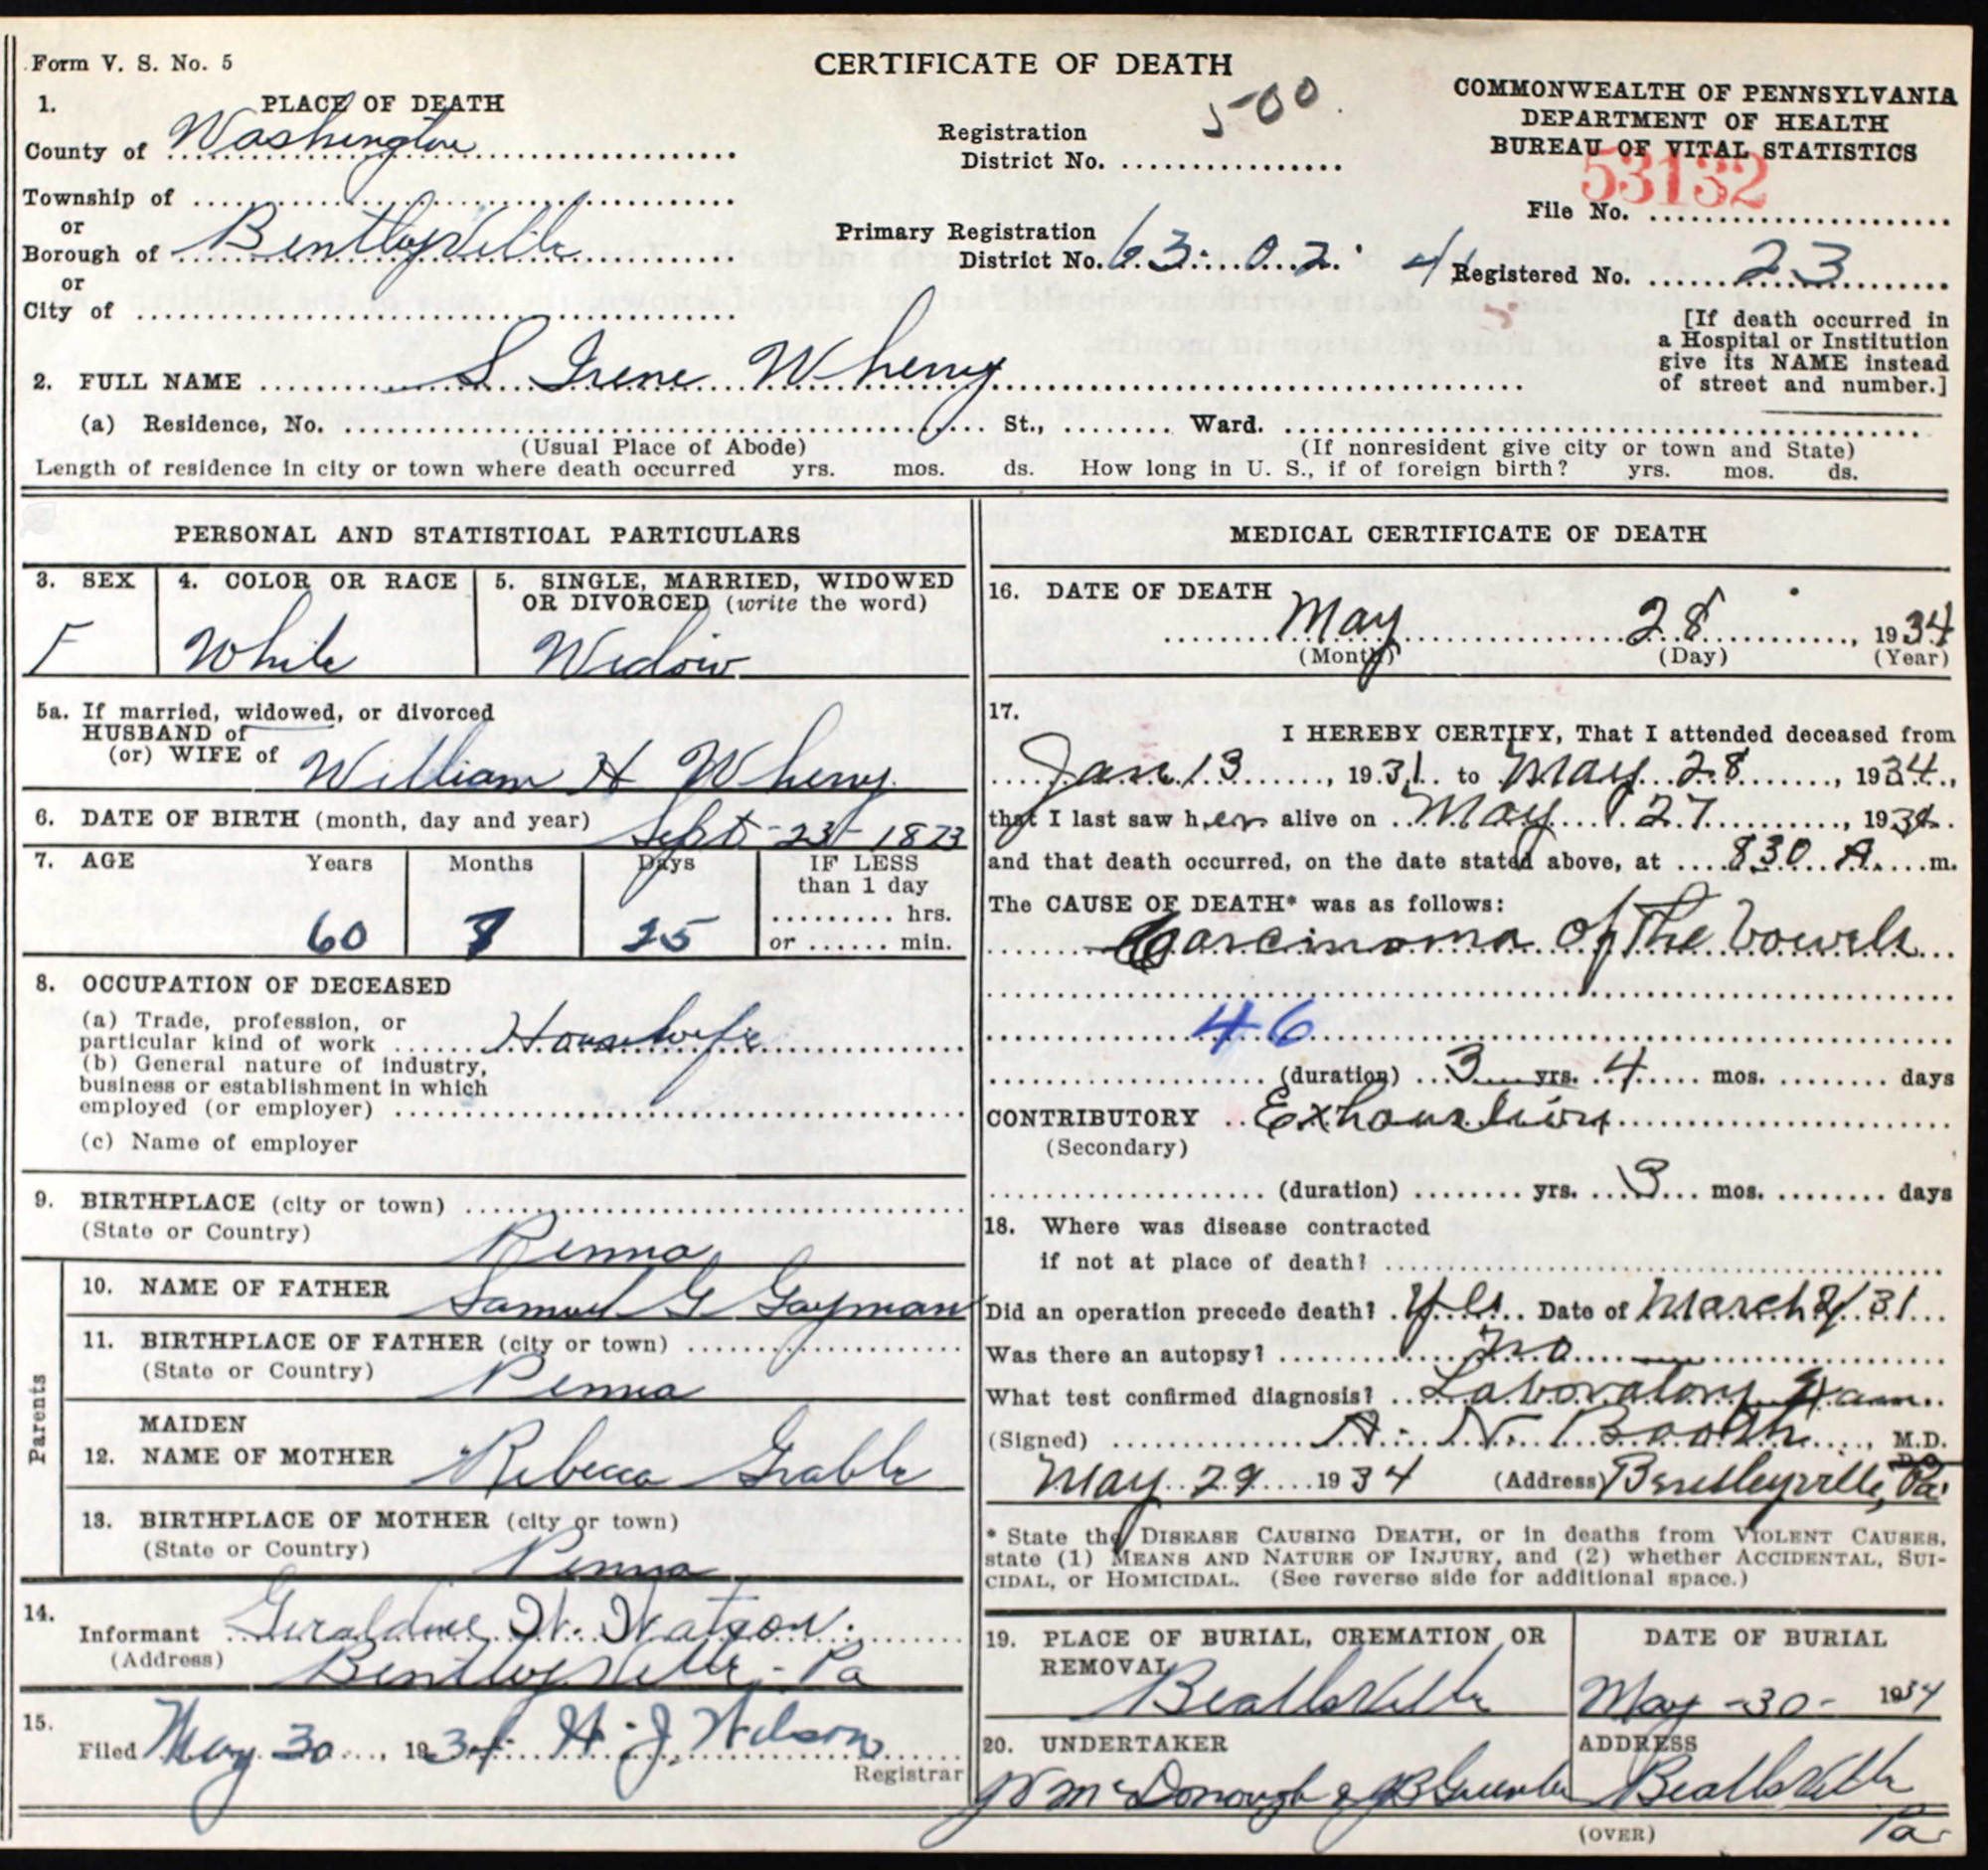 Form V. S. No. 5
CERTIFICATE OF DEATH
COMMONWEALTH OF PENNSYLVANIA
DEPARTMENT OF HEALTH
BUREAU OF VITAL STATISTICS
1. PLACE OF DEATH
County of Washington
Township of
or
Borough of Bentleyville
or
City of
Registration
District No. 500
Primary Registration
District No. 63-02-4
53132
File No.
Registered No. 23
[If death occurred in
a Hospital or Institution
give its NAME instead
of street and number.]
2. FULL NAME S Irene Wherry
(a) Residence, No. St., Ward.
(Usual Place of Abode) (If nonresident give city or town and State)
Length of residence in city or town where death occurred yrs. mos. ds. How long in U. S., if of foreign birth? yrs. mos. ds.
PERSONAL AND STATISTICAL PARTICULARS
3. SEX
F
4. COLOR OR RACE
White
5. SINGLE, MARRIED, WIDOWED
OR DIVORCED (write the word)
Widow
5a. If married, widowed, or divorced
HUSBAND of
(or) WIFE of William H Wherry
6. DATE OF BIRTH (month, day and year) Sept-23-1873
7. AGE Years Months Days IF LESS
than 1 day
hrs.
or min.
60 25
8. OCCUPATION OF DECEASED
(a) Trade, profession, or
particular kind of work Housewife
(b) General nature of industry,
business or establishment in which
employed (or employer)
(c) Name of employer
9. BIRTHPLACE (city or town)
(State or Country) Penna
Parents
10. NAME OF FATHER Samuel G Gayman
11. BIRTHPLACE OF FATHER (city or town)
(State or Country) Penna
MAIDEN
12. NAME OF MOTHER Rebecca Grable
13. BIRTHPLACE OF MOTHER (city or town)
(State or Country) Penna
14.
Informant Geraldine W. Watson.
(Address) Bentleyville - Pa
15.
Filed May 30, 1934 H. J. Wilson
Registrar
MEDICAL CERTIFICATE OF DEATH
16. DATE OF DEATH
May 28, 1934
(Month) (Day) (Year)
17.
I HEREBY CERTIFY, That I attended deceased from
Jan 13, 1931 to May 28, 1934,
that I last saw her alive on May 27, 1934.
and that death occurred, on the date stated above, at 830 A. m.
The CAUSE OF DEATH* was as follows:
Carcinoma of The bowels
46
(duration) 3 yrs. 4 mos. days
CONTRIBUTORY Exhaustion
(Secondary)
(duration) yrs. 3 mos. days
18. Where was disease contracted
if not at place of death?
Did an operation precede death? Yes. Date of March /31
Was there an autopsy? No
What test confirmed diagnosis? Laboratory Exam.
(Signed) A. N. Booth, M.D.
D.O.
May 29 1934 (Address) Bentleyville, Pa.
* State the DISEASE CAUSING DEATH, or in deaths from VIOLENT CAUSES,
state (1) MEANS AND NATURE OF INJURY, and (2) whether ACCIDENTAL, SUI-
CIDAL, or HOMICIDAL. (See reverse side for additional space.)
19. PLACE OF BURIAL, CREMATION OR
REMOVAL
Beallsville
DATE OF BURIAL
May -30- 1934
20. UNDERTAKER
McDonough &
ADDRESS
Beallsville
Pa
(OVER)